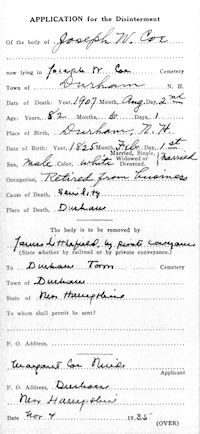 APPLICATION for the Disinterment
Of the body of Joseph W. Coe
now lying in Joseph W. Coe Cemetery
Town of Durham N. H.
Date of Death: Year, 1907 Month, Aug, Day, 2nd
Age: Years, 82 Months, 6 Days, 1
Place of Birth, Durham, N.H.
Date of Birth: Year 1825 Month, Feb, Day, 1st
Married, Single, Widowed or Divorced. Married
Sex, male Color, white
Occupation, Retired from business
Cause of Death, Senility
Place of Death, Durham
The body is to be removed by
James by private conveyance
(State whether by railroad or by private conveyance.)
To Durham Town Cemetery
Town of Durham
State of New Hampshire
To whom shall permit be sent?
P. O. Address,
Margaret Coe
Applicant
P. O. Address, Durham
New Hampshire
Date Nov. 4 1935
(OVER)